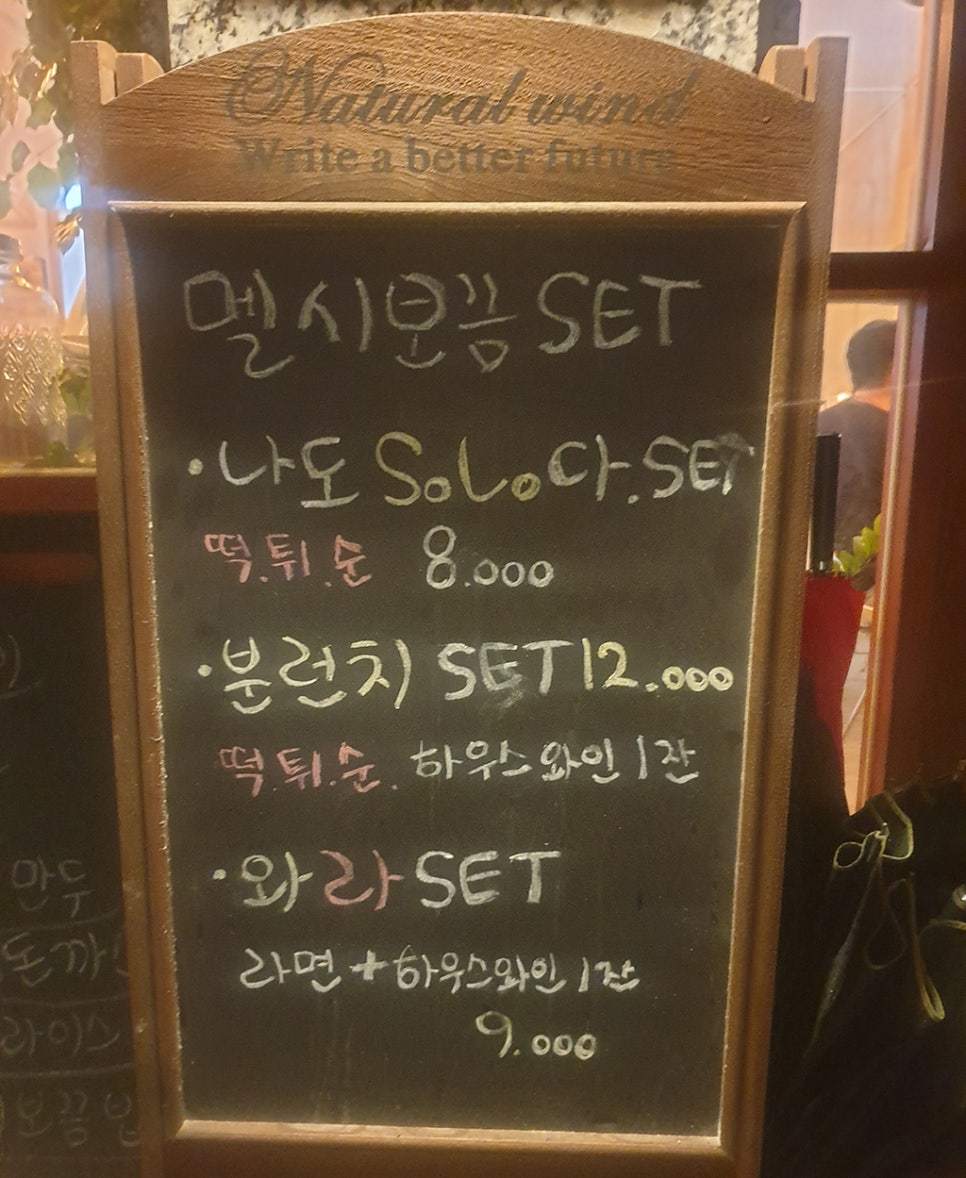 Natural wind
Write a better future
멜시보끔 SET
·나도 SoLo다.SET
떡.튀.순 8.000
·분런치 SET 12.000
떡.튀.순. 하우스와인 1잔
·와라 SET
라면+하우스와인 1잔
9.000
만두
돈까
라이스
보끔